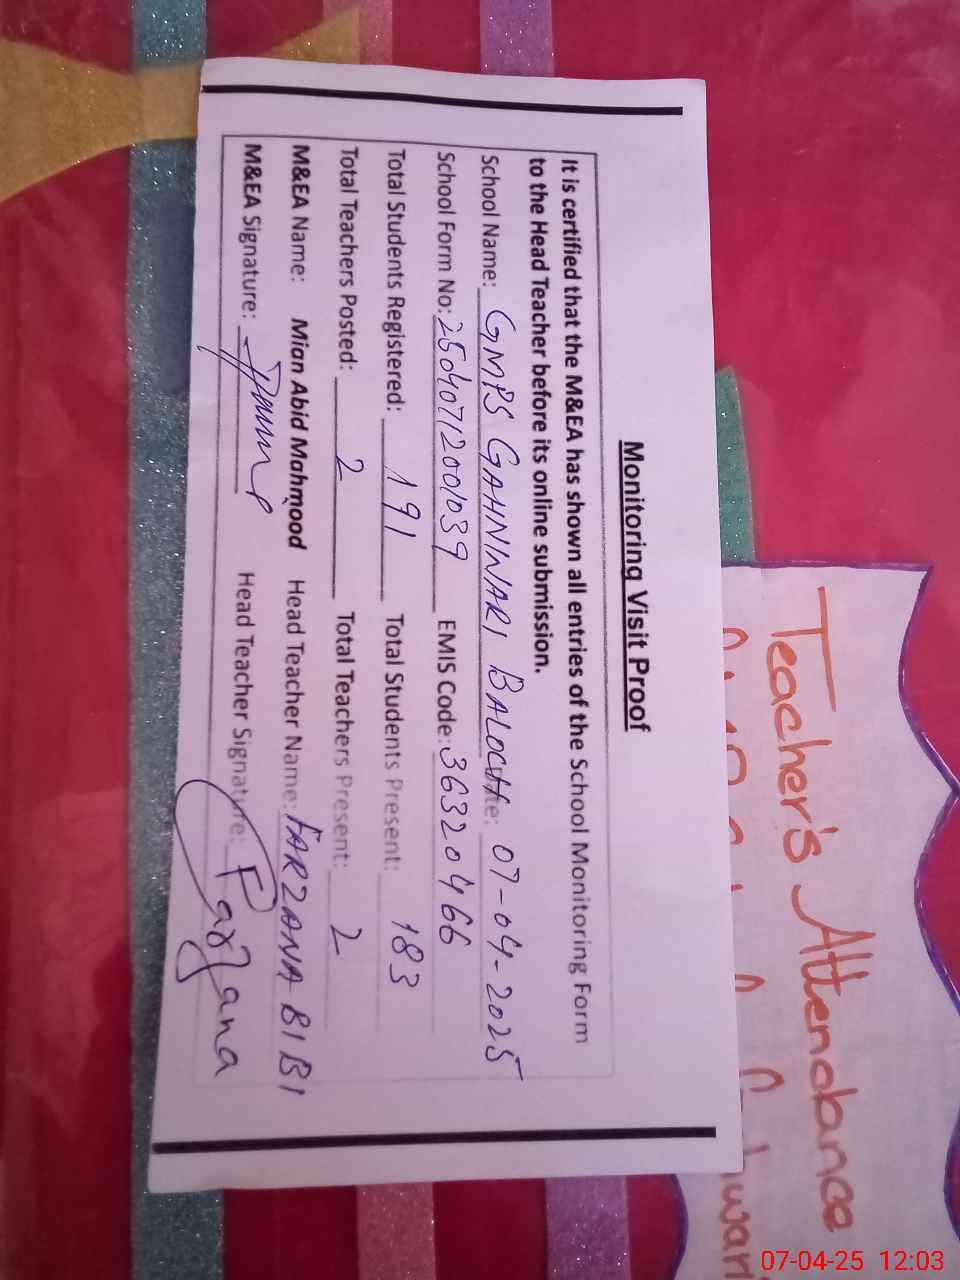 Monitoring Visit Proof
It is certified that the M&EA has shown all entries of the School Monitoring Form
to the Head Teacher before its online submission.
School Name: GMPS GAHNWARI BALOCH Date: 07-04-2025
School Form No: 25040712001039 EMIS Code: 36320466
Total Students Registered: 191 Total Students Present: 183
Total Teachers Posted: 2 Total Teachers Present: 2
M&EA Name: Mian Abid Mahmood Head Teacher Name: FARZANA BIBI
M&EA Signature: Head Teacher Signature: Farzana
Teacher's Attendance
07-04-25 12:03